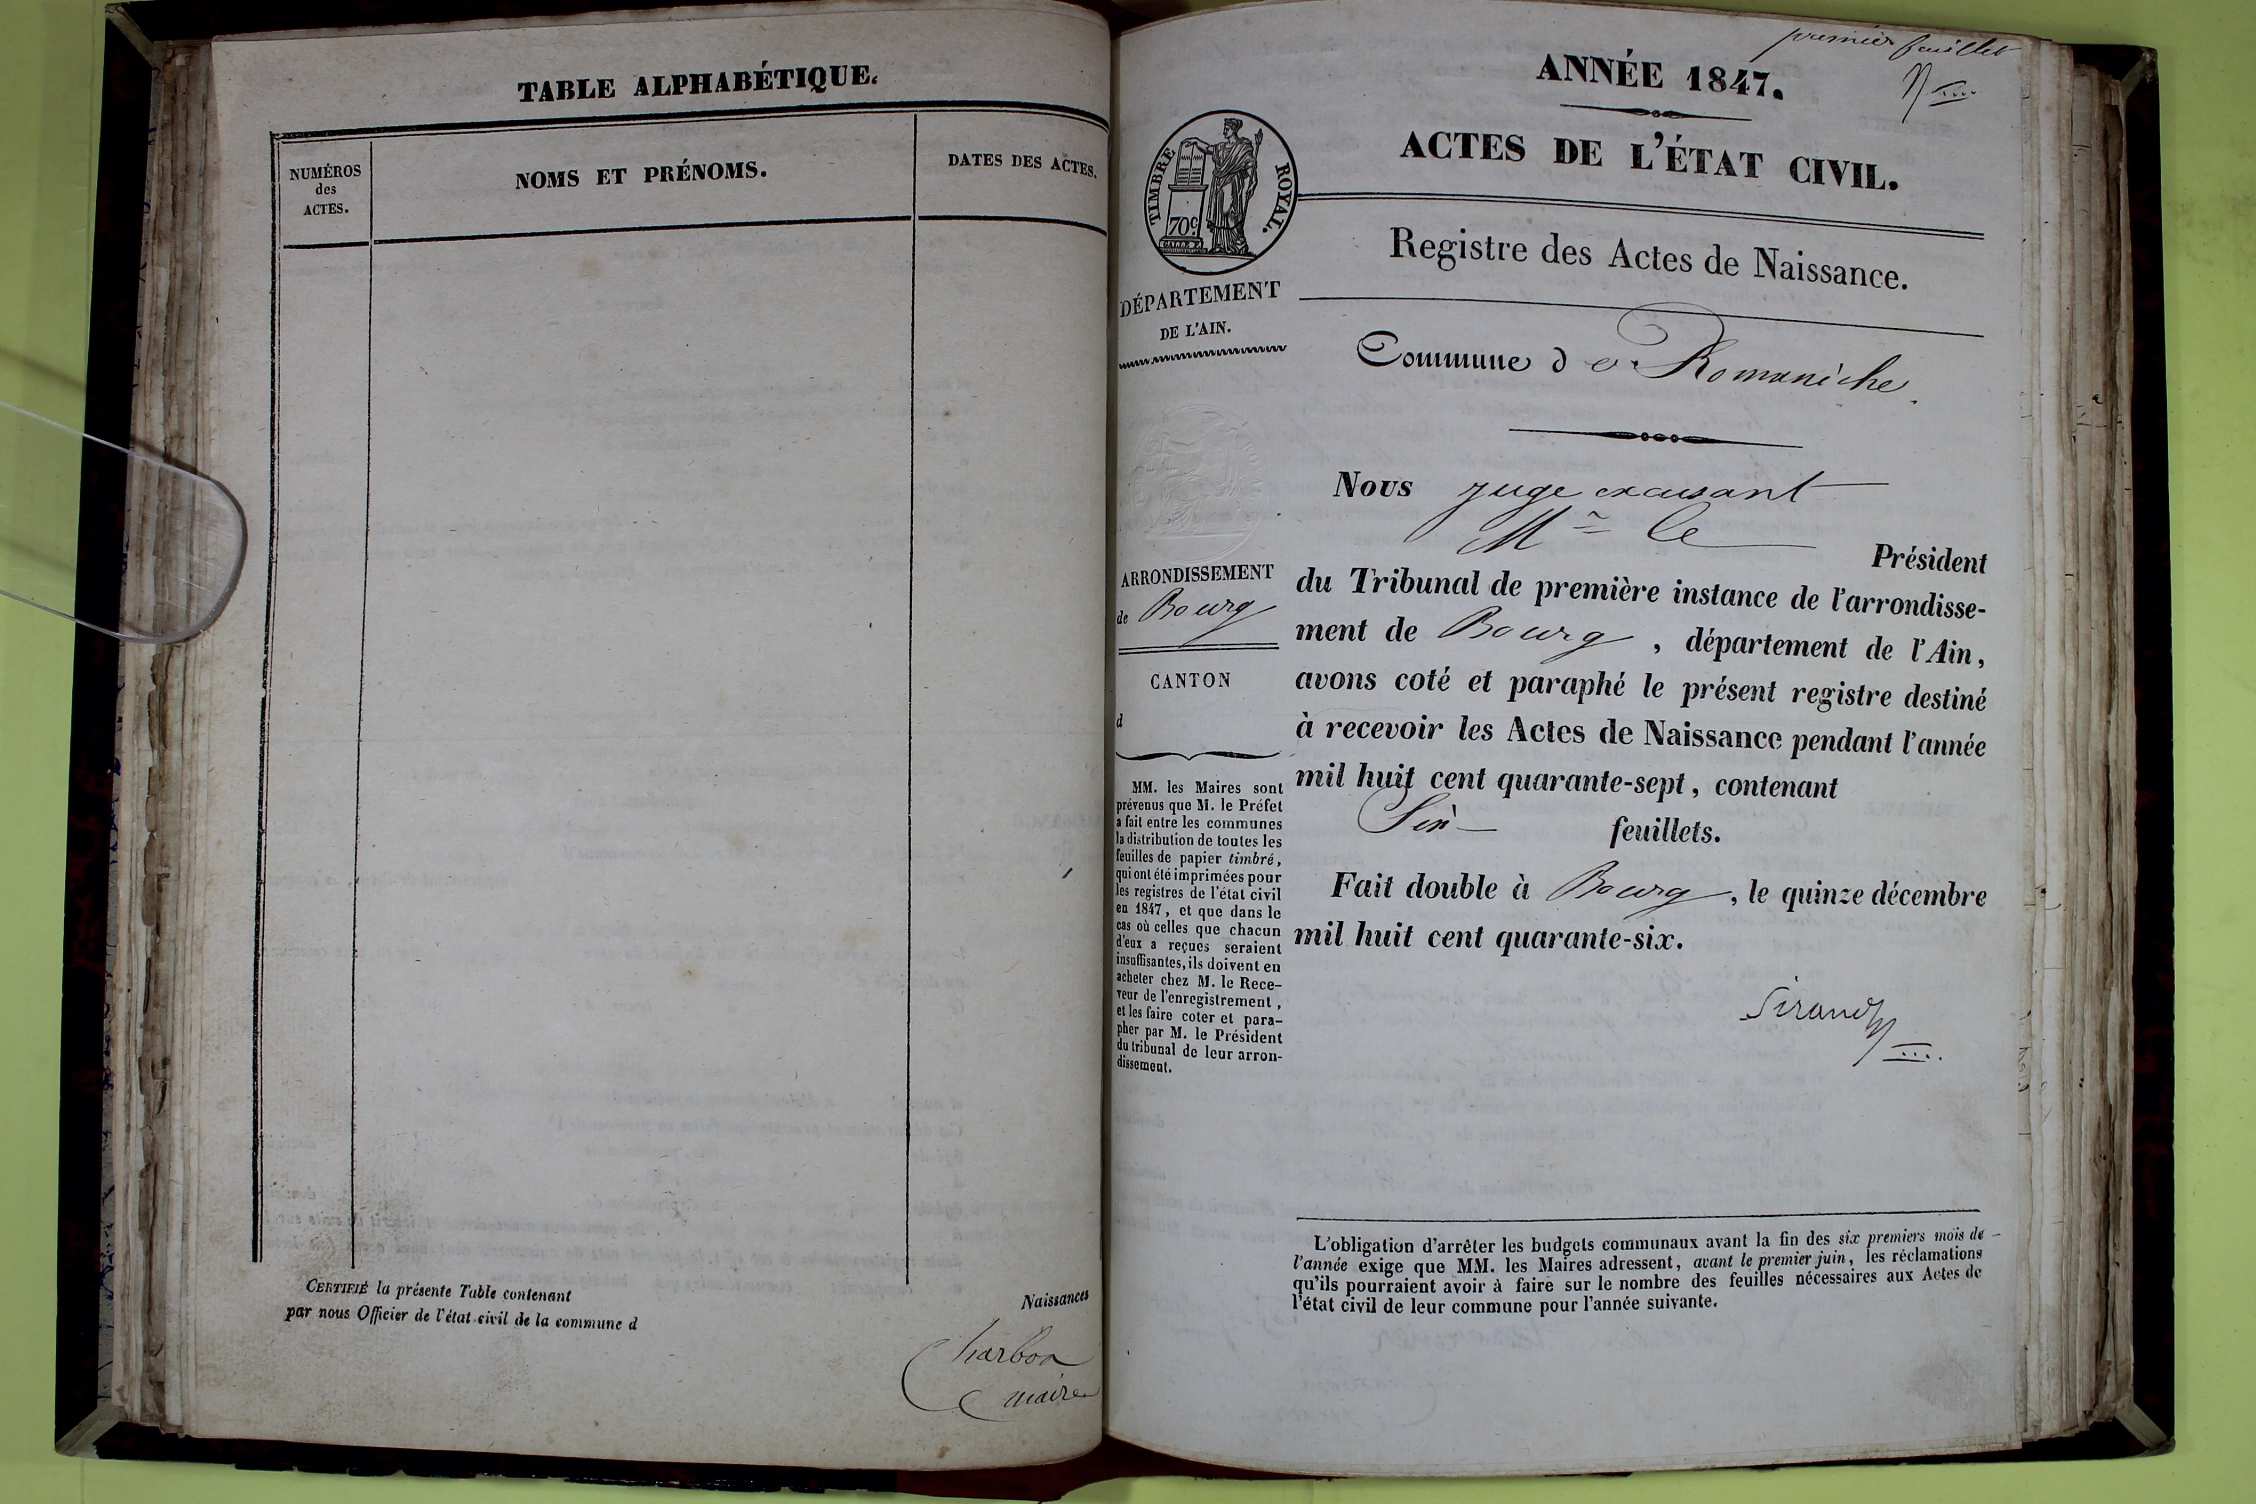 TABLE ALPHABÉTIQUE.
NUMÉROS
des
ACTES.
NOMS ET PRÉNOMS.
DATES DES ACTES.
CERTIFIÉ la présente Table contenant
Naissances
par nous Officier de l'état civil de la commune d
Charbon
maire
premier feuillet
ANNÉE 1847.
ACTES DE L'ÉTAT CIVIL.
TIMBRE ROYAL.
70c.
DÉPARTEMENT
DE L'AIN.
Registre des Actes de Naissance.
Commune de Romaniche.
ARRONDISSEMENT
de Bourg
CANTON
d
MM. les Maires sont
prévenus que M. le Préfet
a fait entre les communes
la distribution de toutes les
feuilles de papier timbré,
qui ont été imprimées pour
les registres de l'état civil
en 1847, et que dans le
cas où celles que chacun
d'eux a reçues seraient
insuffisantes, ils doivent en
acheter chez M. le Rece-
veur de l'enregistrement,
et les faire coter et para-
pher par M. le Président
du tribunal de leur arron-
dissement.
Nous juge excusant
Mr le
Président
du Tribunal de première instance de l'arrondisse-
ment de Bourg, département de l'Ain,
avons coté et paraphé le présent registre destiné
à recevoir les Actes de Naissance pendant l'année
mil huit cent quarante-sept, contenant
Six feuillets.
Fait double à Bourg, le quinze décembre
mil huit cent quarante-six.
Sirand
L'obligation d'arrêter les budgets communaux avant la fin des six premiers mois de
l'année exige que MM. les Maires adressent, avant le premier juin, les réclamations
qu'ils pourraient avoir à faire sur le nombre des feuilles nécessaires aux Actes de
l'état civil de leur commune pour l'année suivante.